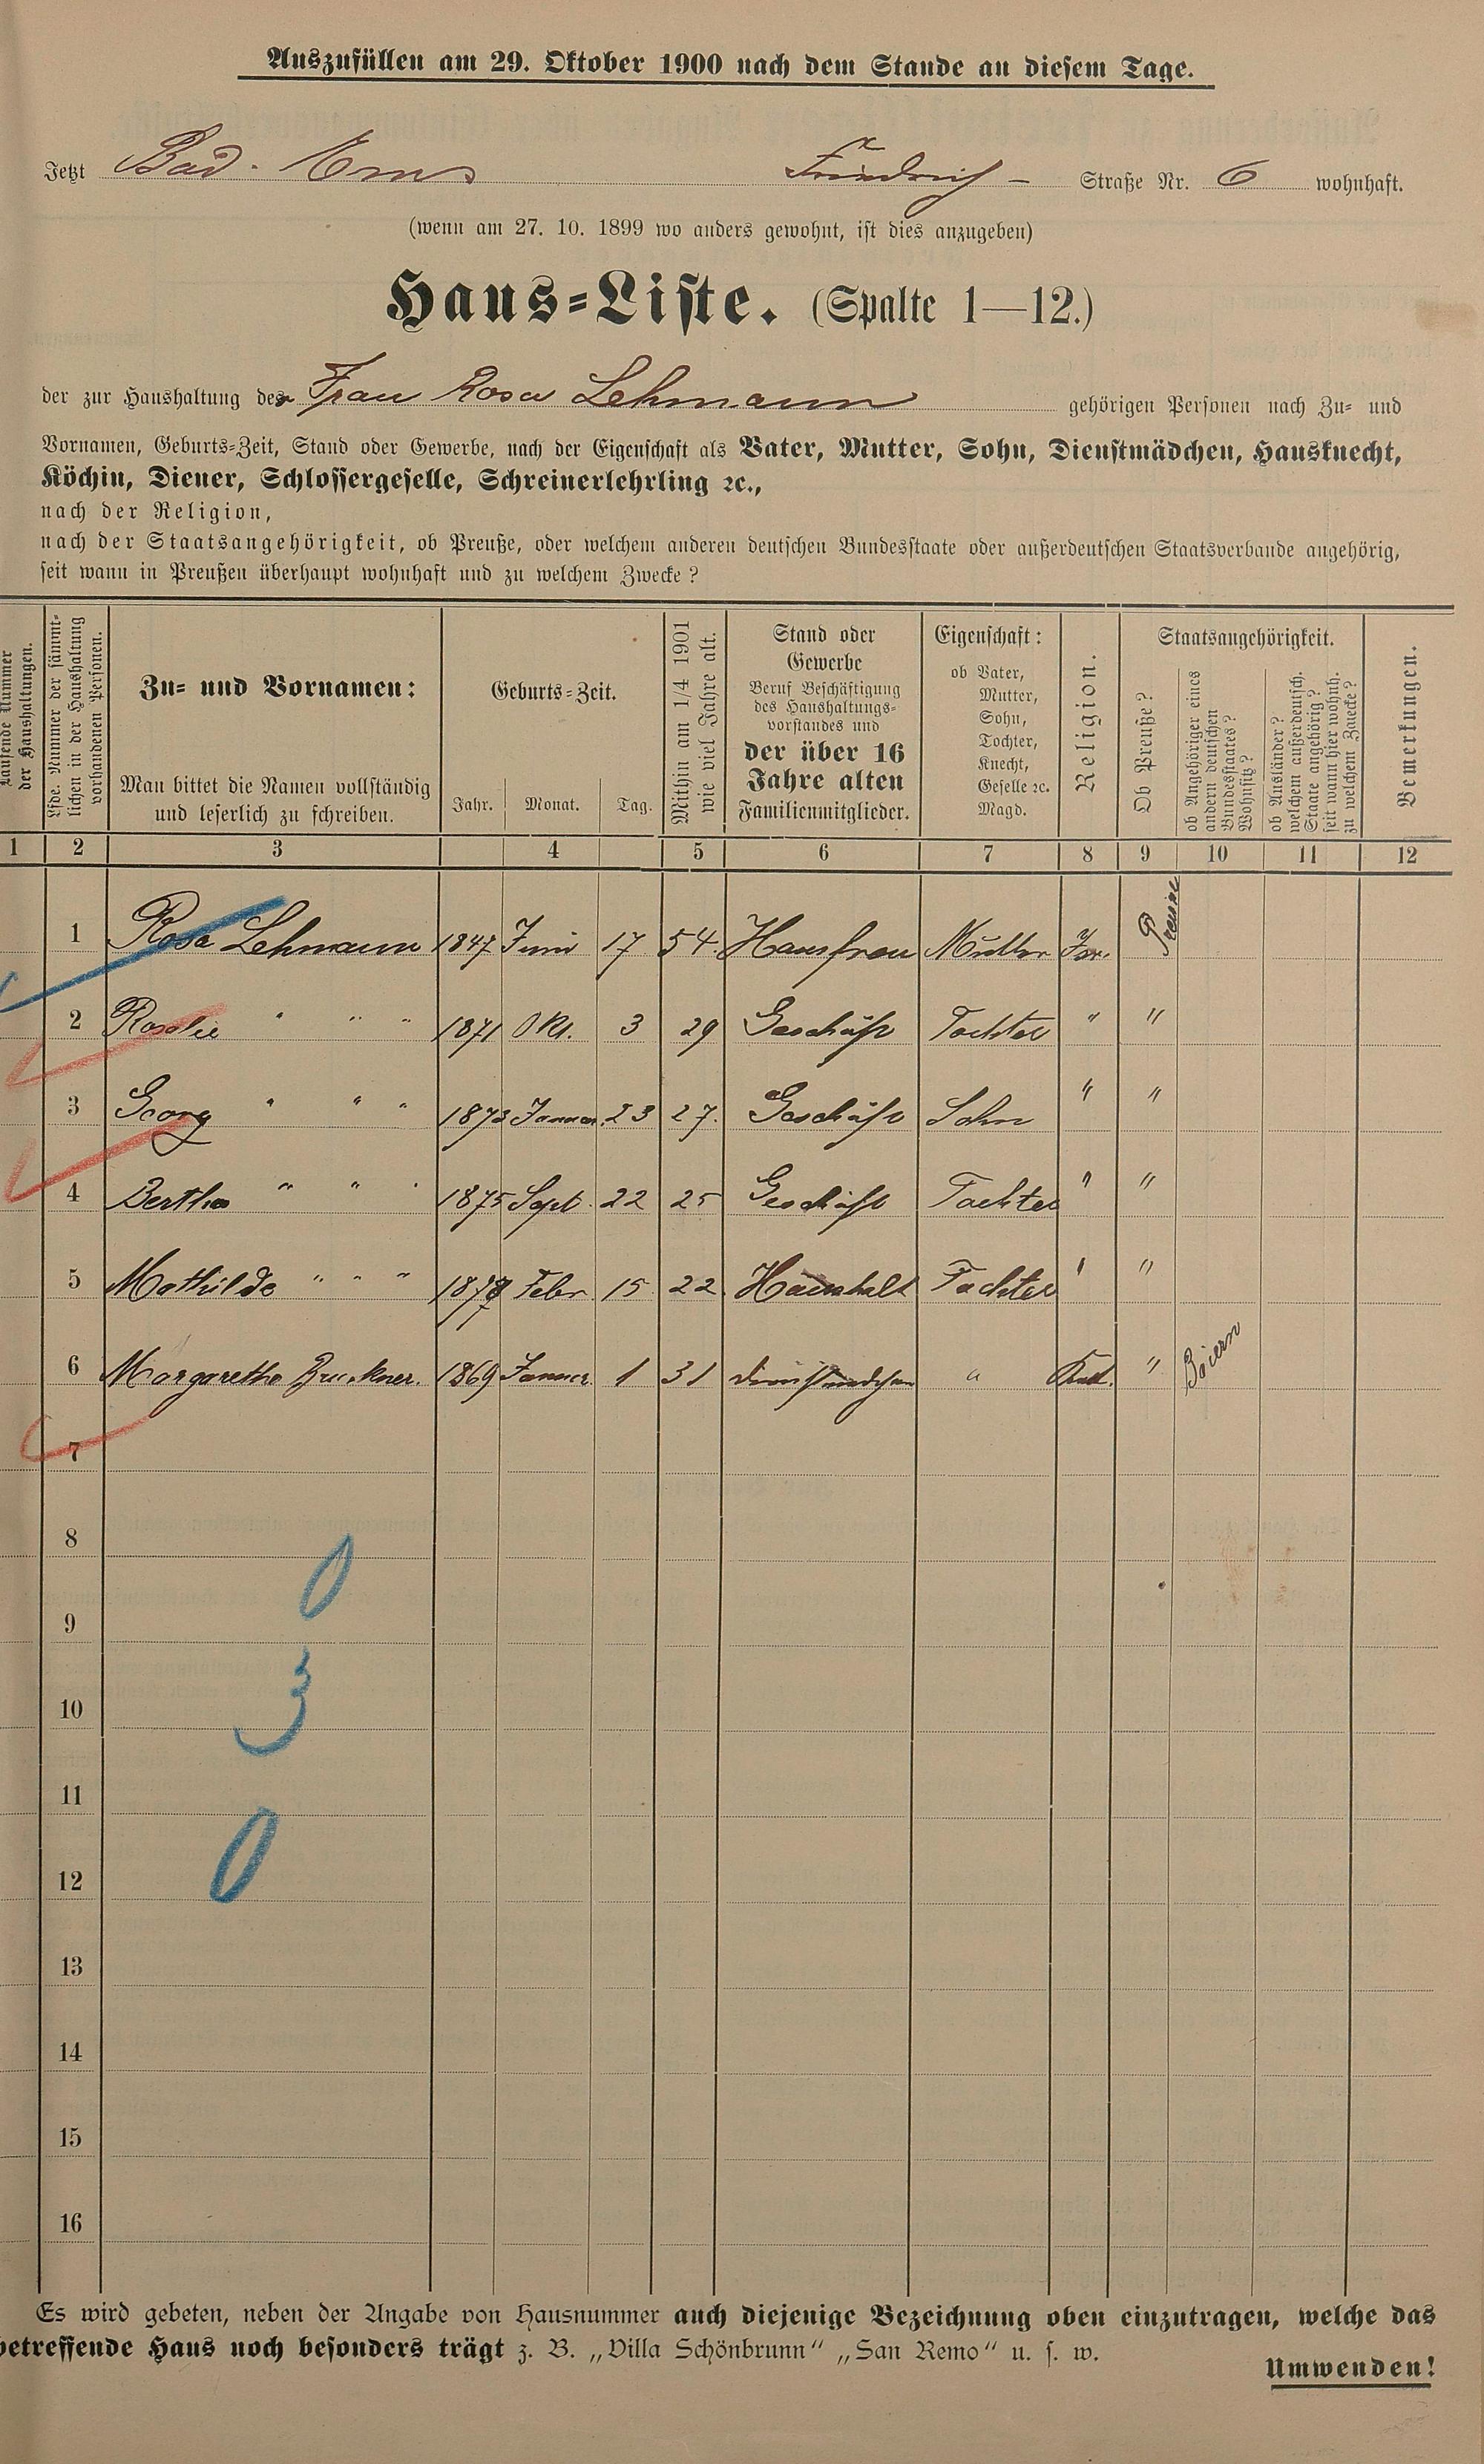 Auszufüllen am 29. Oktober 1900 nach dem Stande an diesem Tage.
Jetzt Bad-Ems Friedrich- Straße Nr. 6 wohnhaft.
(wenn am 27. 10. 1899 wo anders gewohnt, ist dies anzugeben)
Haus-Liste. (Spalte 1—12.)
der zur Haushaltung der Frau Rosa Lehmann gehörigen Personen nach Zu- und
Vornamen, Geburts-Zeit, Stand oder Gewerbe, nach der Eigenschaft als Vater, Mutter, Sohn, Dienstmädchen, Hausknecht,
Köchin, Diener, Schlossergeselle, Schreinerlehrling ꝛc.,
nach der Religion,
nach der Staatsangehörigkeit, ob Preuße, oder welchem anderen deutschen Bundesstaate oder außerdeutschen Staatsverbande angehörig,
seit wann in Preußen überhaupt wohnhaft und zu welchem Zwecke?
Laufende Nummer
der Haushaltungen.
Lfde. Nummer der sämmt-
lichen in der Haushaltung
vorhandenen Personen.
Zu- und Vornamen:
Man bittet die Namen vollständig
und leserlich zu schreiben.
Geburts-Zeit.
Jahr. Monat. Tag.
Mithin am 1/4 1901
wie viel Jahre alt.
Stand oder
Gewerbe
Beruf Beschäftigung
des Haushaltungs-
vorstandes und
der über 16
Jahre alten
Familienmitglieder.
Eigenschaft:
ob Vater,
Mutter,
Sohn,
Tochter,
Knecht,
Geselle ꝛc.
Magd.
Religion.
Staatsangehörigkeit.
Ob Preuße?
ob Angehöriger eines
andern deutschen
Bundesstaates?
Wohnsitz?
ob Ausländer?
welchem außerdeutsch.
Staate angehörig?
seit wann hier wohnh.
zu welchem Zwecke?
Bemerkungen.
1 2 3 4 5 6 7 8 9 10 11 12
1 Rosa Lehmann 1847 Juni 17 54. Hausfrau Mutter Isr. Preusse
2 Rosalie " " " 1871 Okt. 3 29 Geschäft Tochter " "
3 Georg " " " 1873 Januar 23 27. Geschäft Sohn " "
4 Bertha " " " 1875 Sept. 22 25 Geschäft Tochter " "
5 Mathilde " " " 1878 Febr 15 22 Haushalt Tochter " "
6 Margaretha Bruckner. 1869 Januar. 1 31 Dienstmädchen " Kath. " Baiern
7
8
0
9
3
10
11
0
12
13
14
15
16
Es wird gebeten, neben der Angabe von Hausnummer auch diejenige Bezeichnung oben einzutragen, welche das
betreffende Haus noch besonders trägt z. B. „Villa Schönbrunn“ „San Remo“ u. s. w.
Umwenden!